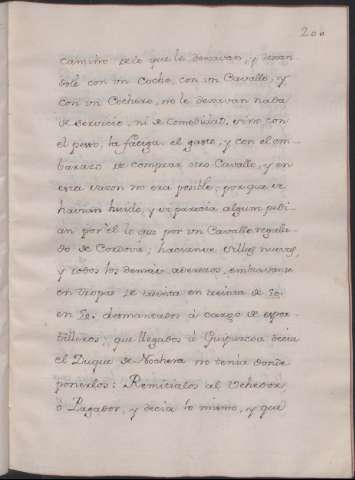 200
camino de lo que le dexavan, y dexan
dole con un Coche, con un Cavallo, y
con un Cochero, no le dexavan nada
de servicio, ni de comodidad, sino con
el peso, la fatiga, el gasto, y con el em
barazo de comprar otro Cavallo, y en
esta razon no era posible; porque se
havian huido, y si parecia alguno pedi
an por el lo que por un Cavallo regala
do de Cordova; hacianse sillas nuevas,
y todos los demas aderezos, embiavanse
en tropas de treinta en treinta de
en demandaron á cargo de espor
tilleros; que llegados á Guipuzcoa decia
el Duque de Nochera no tenia donde
ponerlos: Remitialos al Vehedor
ó Pagador, y decia lo mismo, y que